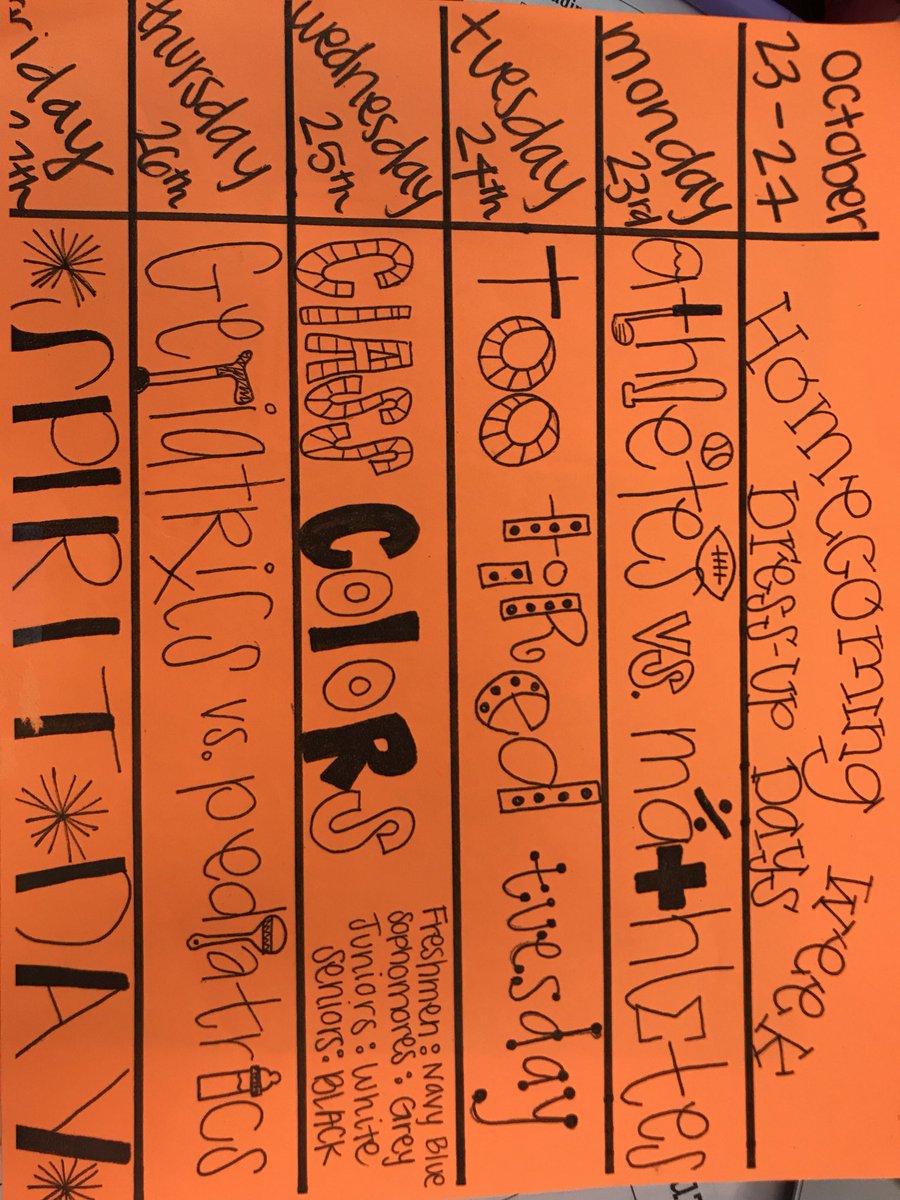 October
23-27
Homecoming Week
Dress-up Days
monday
23rd
athletes vs. mathletes
tuesday
24th
Too tired tuesday
wednesday
25th
CLASS COLORS
Freshmen: Navy Blue
Sophomores: Grey
Juniors: White
Seniors: BLACK
thursday
26th
GeriatRics vs. pediatrics
friday
27th
SPIRIT DAY